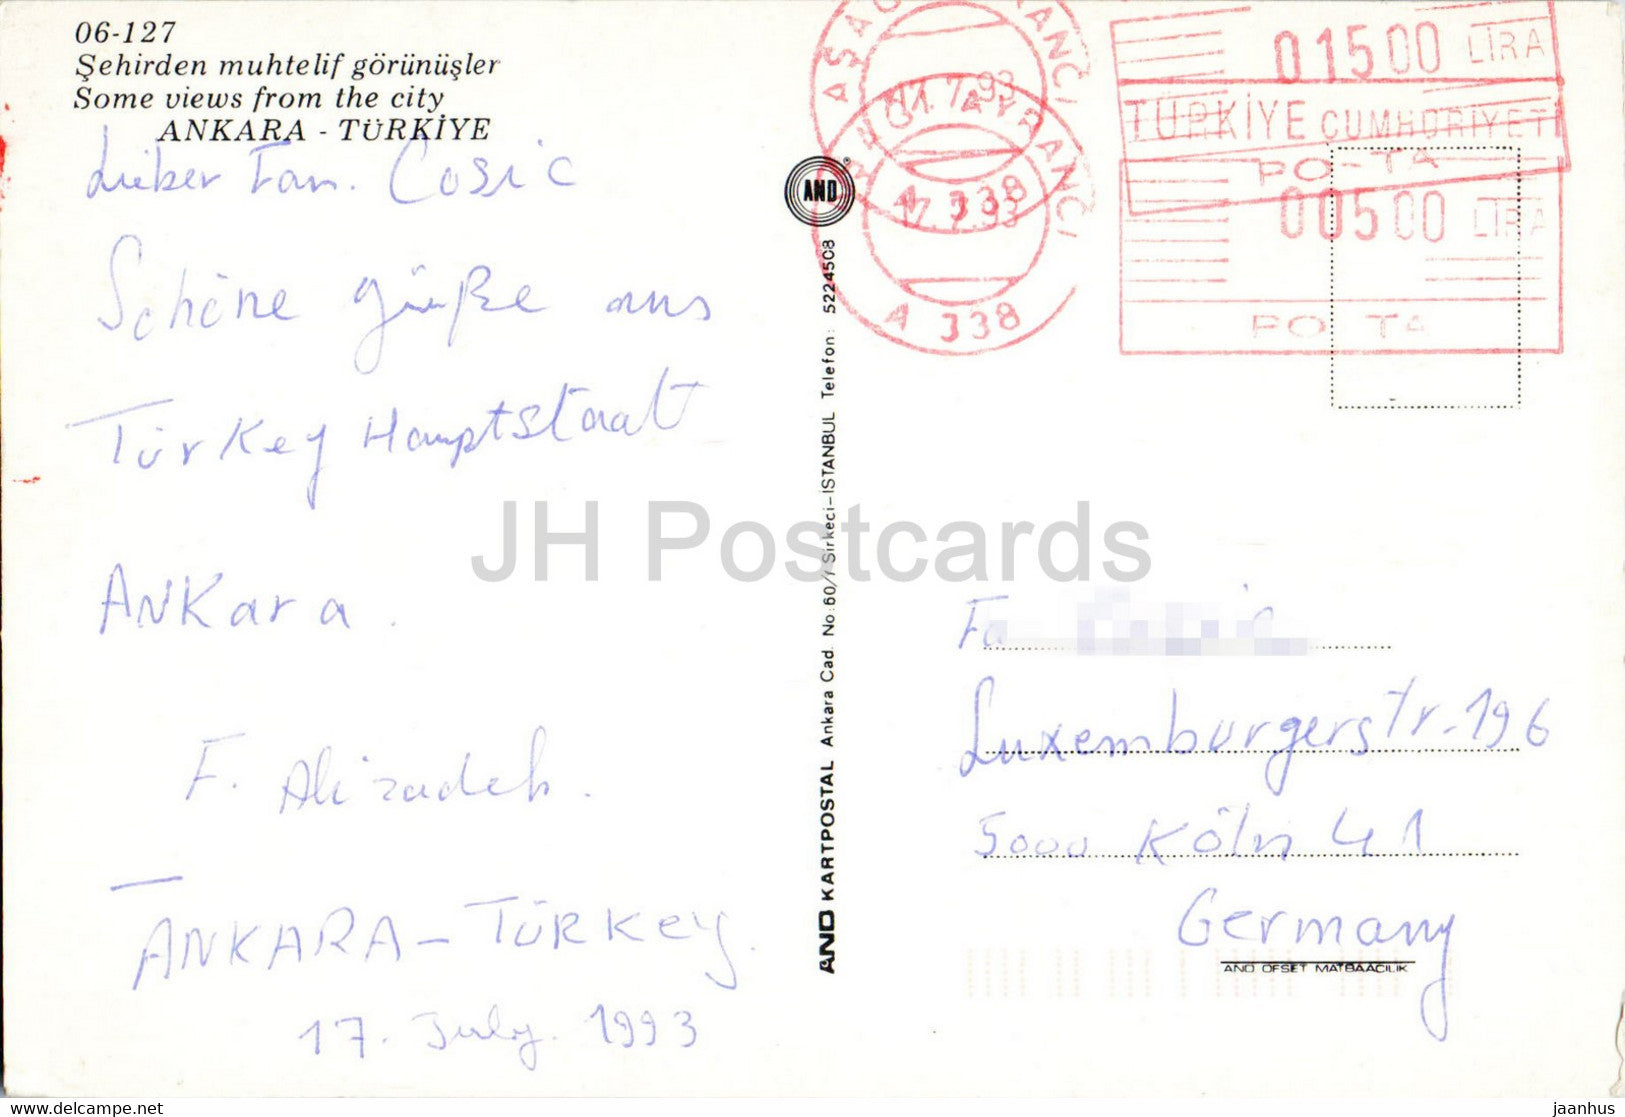 06-127
Şehirden muhtelif görünüşler
Some views from the city
ANKARA - TÜRKİYE
Lieber Fam. Cosic
Schöne güße aus
Türkey Hauptstaat
ANKara.
F. Alizadeh.
ANKARA - TÜRKey.
17. July. 1993
AND
AND KARTPOSTAL Ankara Cad. No: 60/1 Sirkeci-ISTANBUL Telefon: 5224508
17.7.93
A 338
17.7.93
A 338
01500 LİRA
TÜRKİYE CUMHURİYETİ
PO-TA
00500 LİRA
PO TA
JH Postcards
Fa
Luxemburgerstr. 196
5000 Köln 41
Germany
AND OFSET MATBAACILIK
delcampe.net
jaanhus